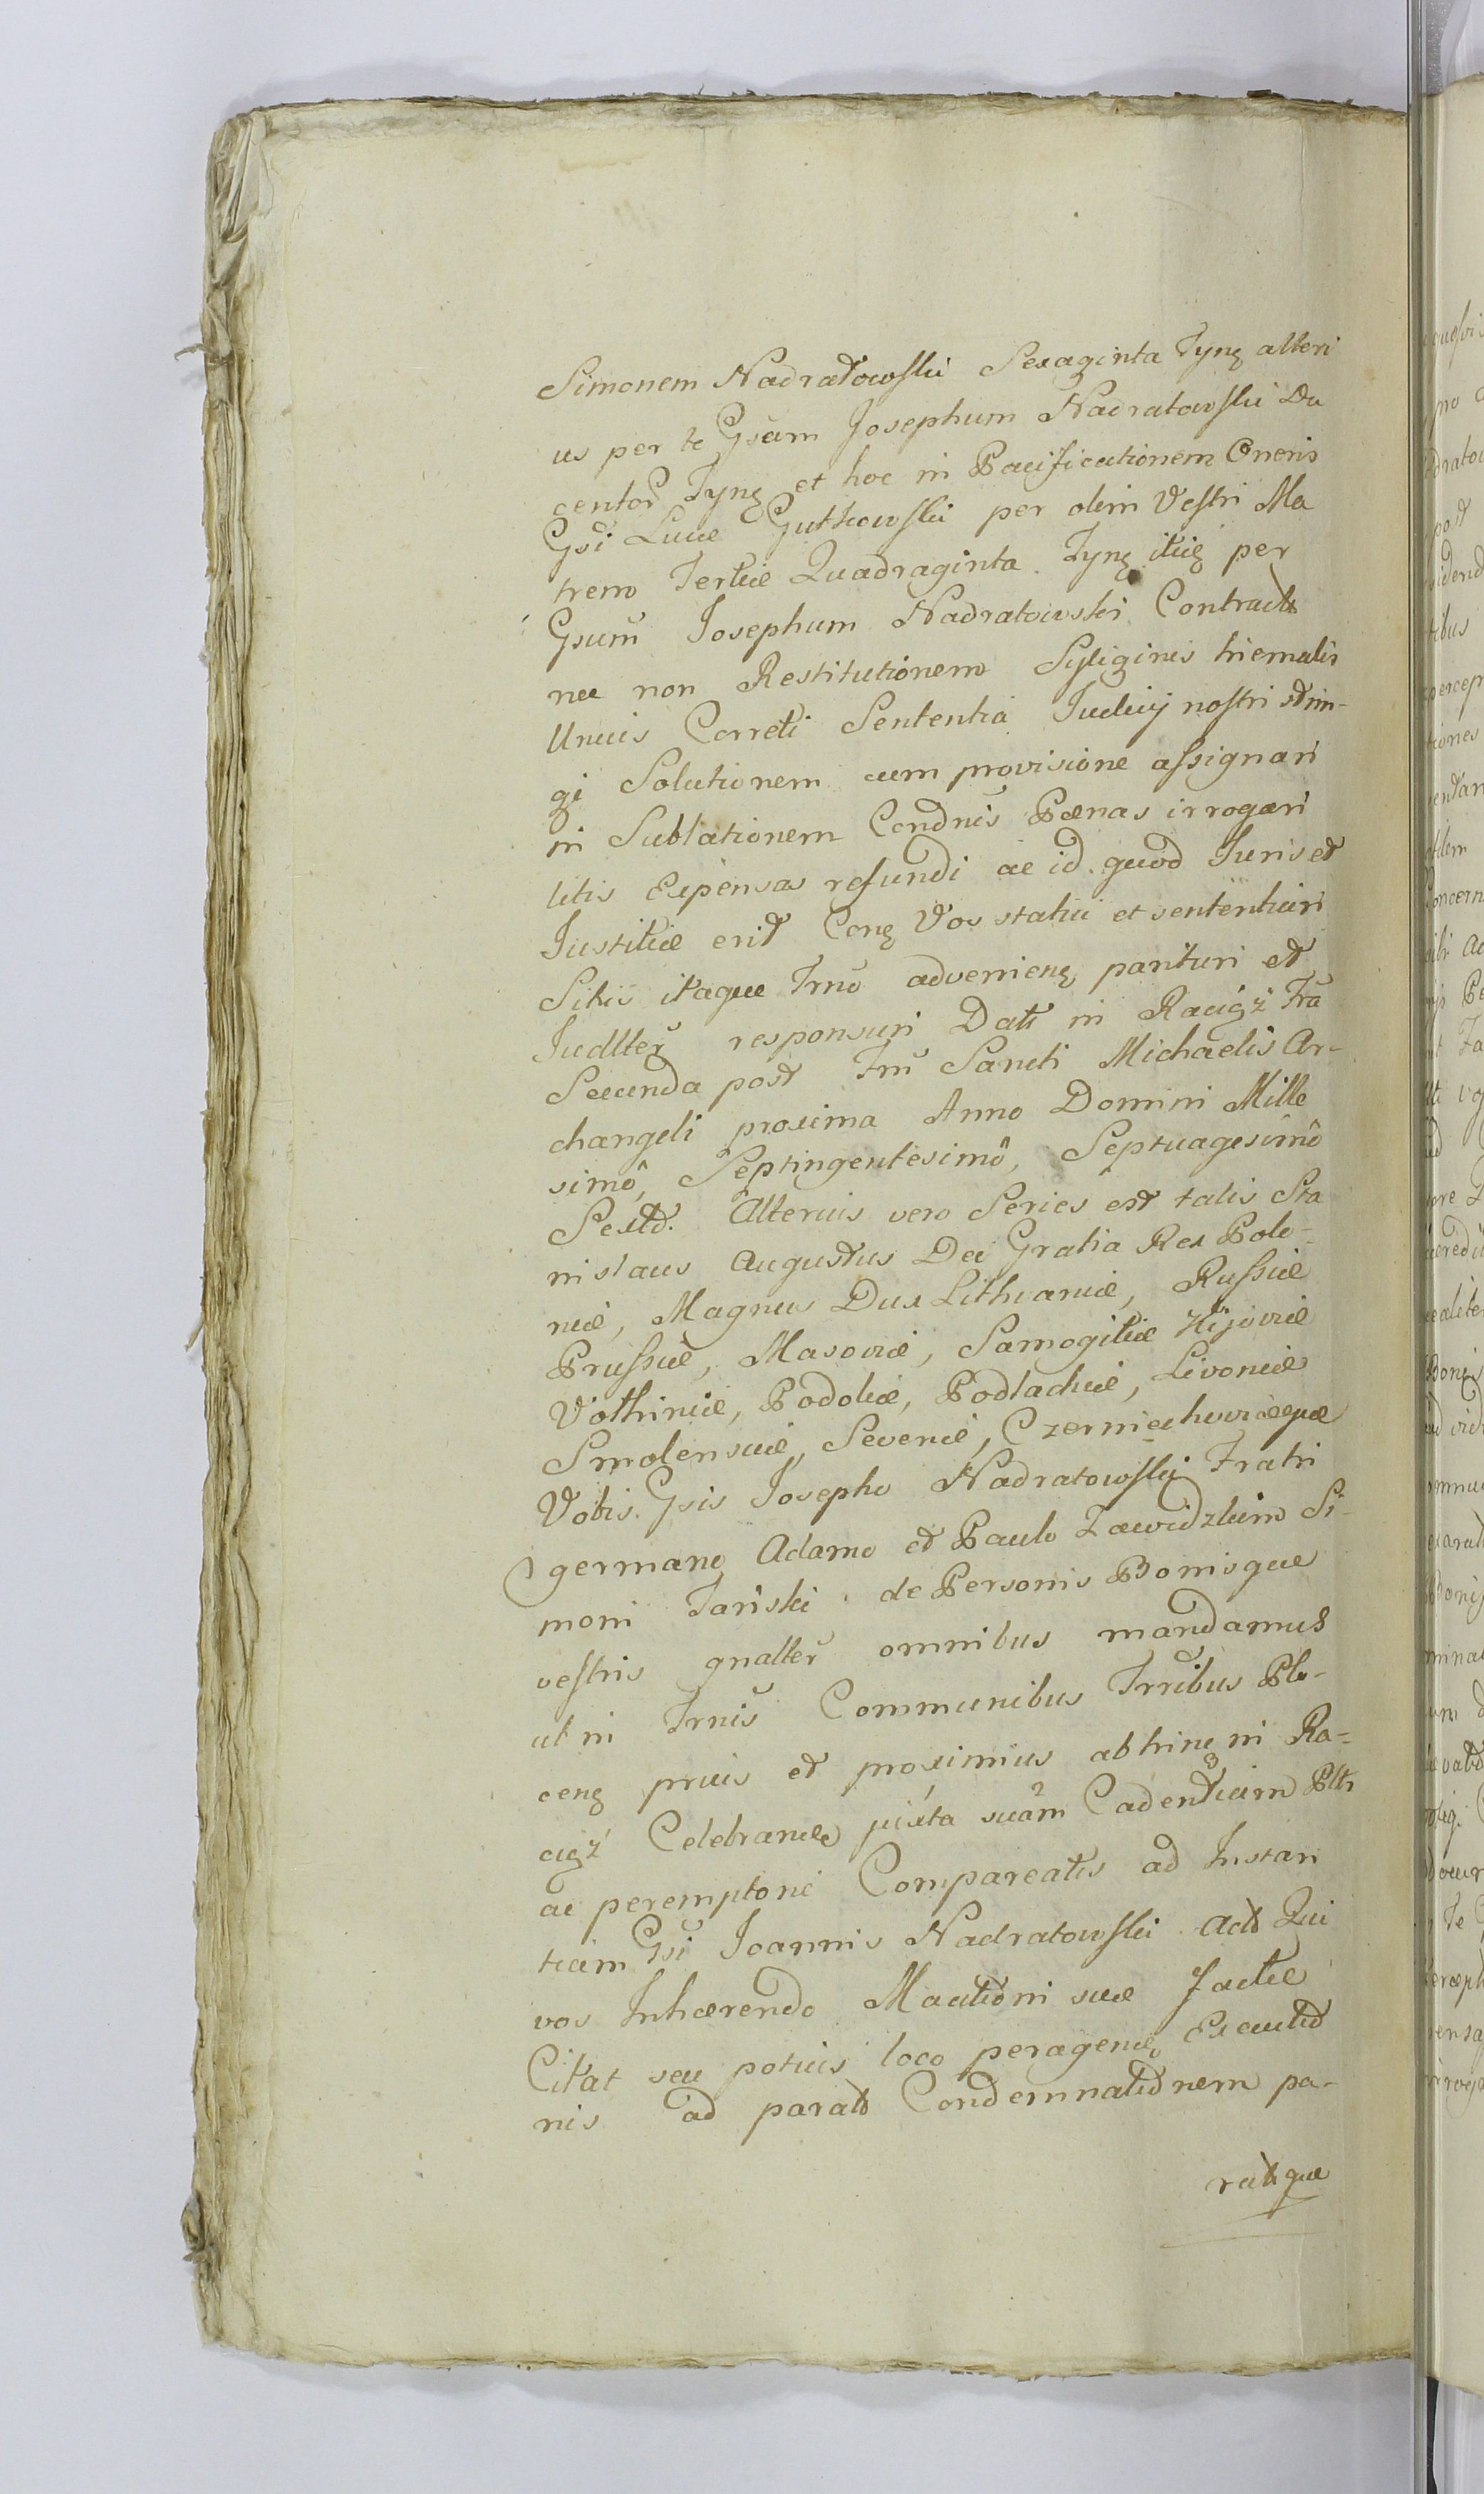 Simonem Nadratowski Sexaginta Tynq alteri
us per te Gsum Josephum Nadratowski Du
centos Tynq et hoc in Pacificationem Oneris
Gsi Lucæ Gutkowski per olim Vestri Ma
trem Tertiæ Quadraginta Tynq itiq per
Gsum Josephum Nadratowski Contract
nec non Restitutionem Syliginis hiemalis
Unius Correti Sententia Judicij nostri
gi Solutionem cum provisione assignari
in Sublationem Condnis Pænas irrogari
litis Expensas refundi ac id quod Juris et
Justitiæ erit Conq Vos statui et sententiari
Sitis itaque Trno advenienq parituri et
Judlter responsuri Datt in Raciąż Fra
Secunda post Fm Sancti Michaelis Ar-
changeli proxima Anno Domini Mille
simô, Septingentesimô, Septuagesimô
Sextô. Alterius vero Series est talis Sta
nislaus Augustus Dei Gratia Rex Polo-
niæ, Magnus Dux Lithvaniæ, Russiæ
Prussiæ, Masoviæ, Samogitiæ Kijoviæ
Volhiniæ, Podoliæ, Podlachiæ, Livoniæ
Smolensciæ, Severiæ, Czerniechoviæque
Vobis Gsis Josepho Nadratowski Fratri
germano Adamo et Paulo Zawidzkim Si-
moni Tański de Personis Bonisque
vestris gnalter omnibus mandamus
ut in Trnis Communibus Trribus Plo-
cenq prius et proximius abhinc in Ra=
ciąż Celebran juxta suam Cadentiam Pltr
ac peremptorie Compareatis ad Instan
tiam Gsi Joannis Nadratowski Act Qui
vos Inhærendo Mactioni suæ factæ
Citat seu potius loco peragen Exeutio
nis ad parat Condemnationem pa-
ratque